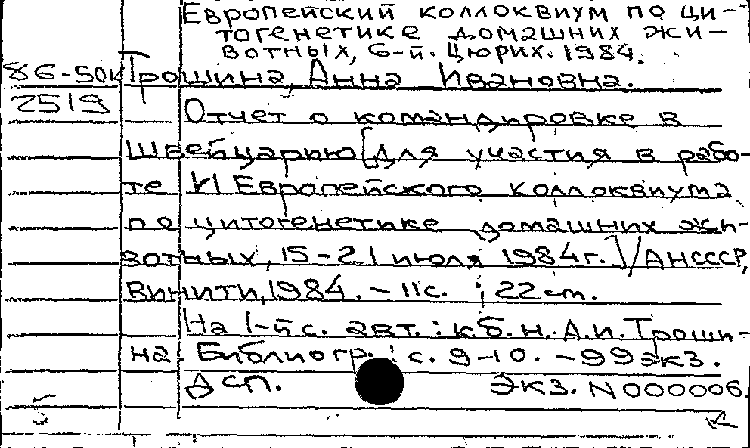 Европейский коллоквиум по ци-
тогенетике домашних жи-
вотных, 6-й. Цюрих. 1984.
86-50к Трошина, Анна Ивановна.
2519 Отчет о командировке в
Швейцарию [для участия в рабо-
те VI Европейского коллоквиума
по цитогенетике домашних жи-
вотных, 15-21 июля 1984г.]/АНСССР,
ВИНИТИ, 1984. - 11с. ; 22 cm.
На 1-й с. авт. : к.б.н. А.И. Троши-
на. Библиогр. : с. 9-10. - 99 экз.
Дсп. Экз. N 000006.